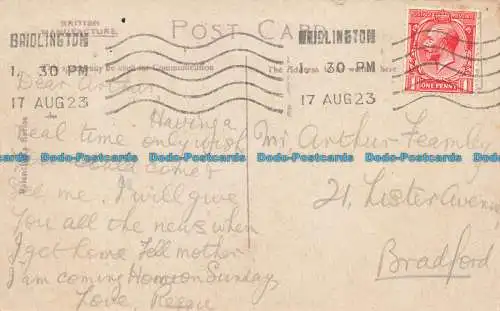 BRITISH
MANUFACTURE.
POST CARD
BRIDLINGTON
1. 30 PM
17 AUG 23
BRIDLINGTON
1. 30 PM
17 AUG 23
ONE PENNY
may be used for Communication
The Address
here
Dear Arthur,
Having a
real time only wish
you could come &
see me. I will give
You all the news when
I get home Tell mother
I am coming Home on Sunday
Love, Reggie
Mr Arthur Fearnley
21, Lister Avenue
Bradford
www.delcampe.net